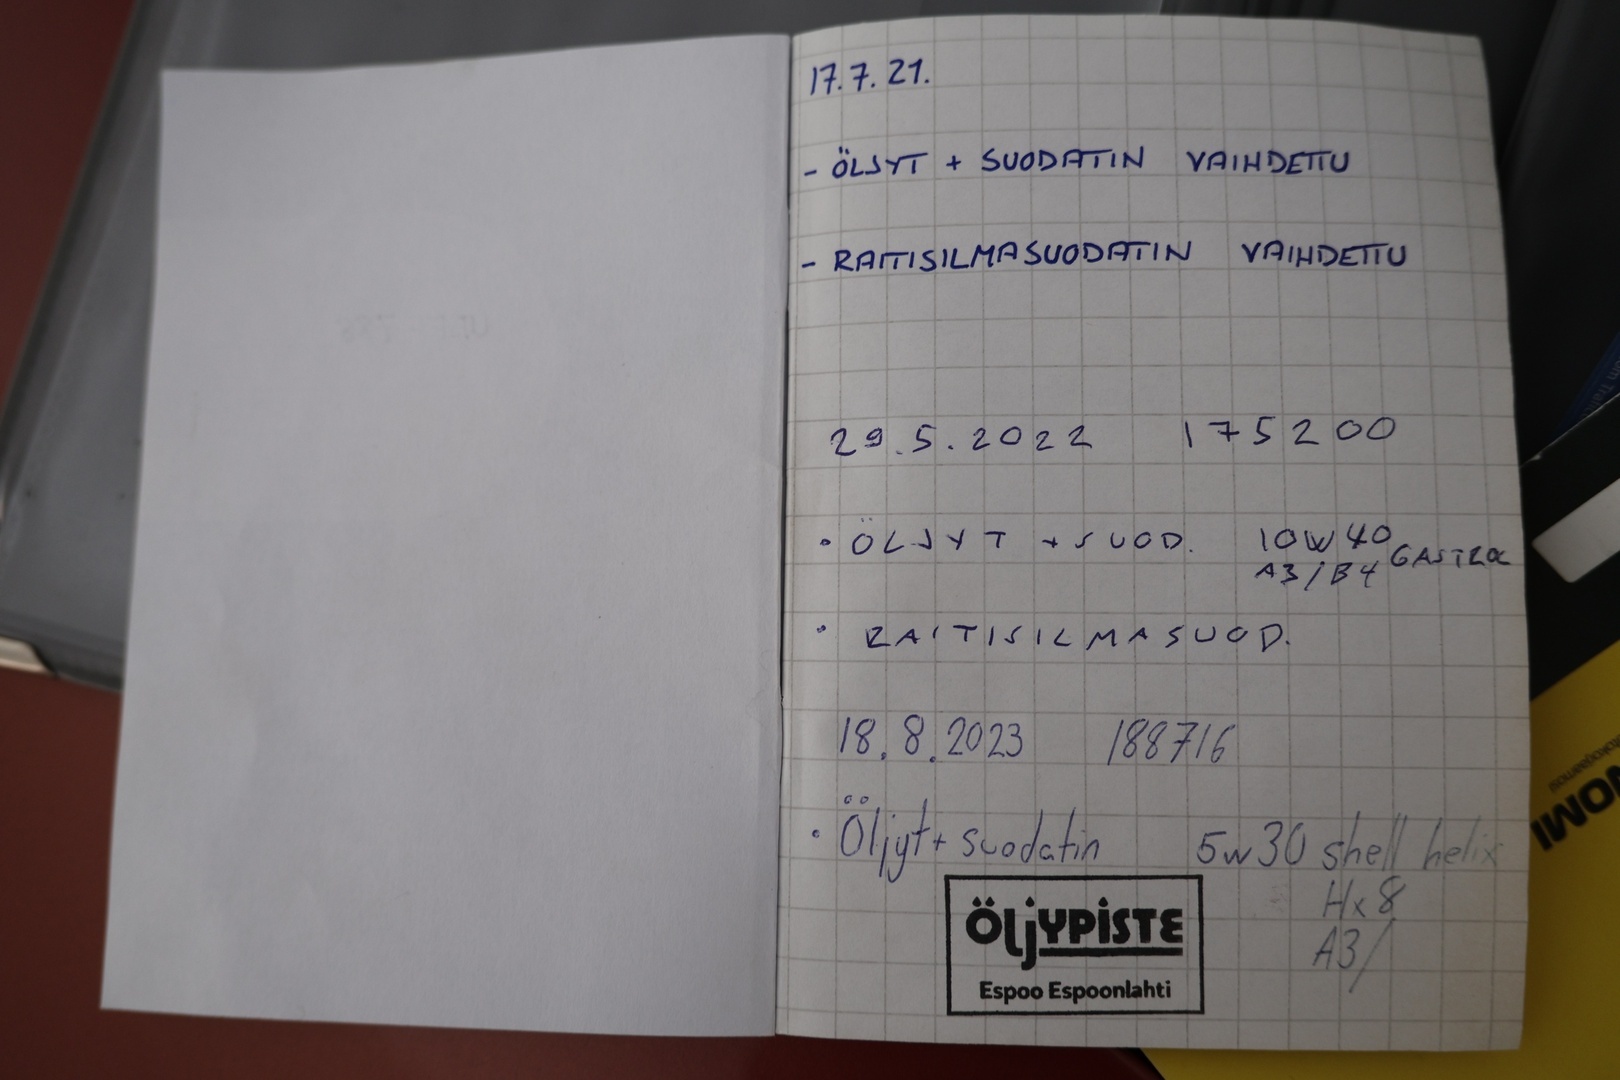 17.7.21.
- ÖLJYT + SUODATIN VAIHDETTU
- RAITISILMASUODATIN VAIHDETTU
29.5.2022 175200
• ÖLJYT + SUOD. 10W40
A3/B4 CASTROL
• RAITISILMASUOD.
18.8.2023 188716
• Öljyt + suodatin 5w30 shell helix
Hx8
A3/
ÖLJYPISTE
Espoo Espoonlahti
OMI